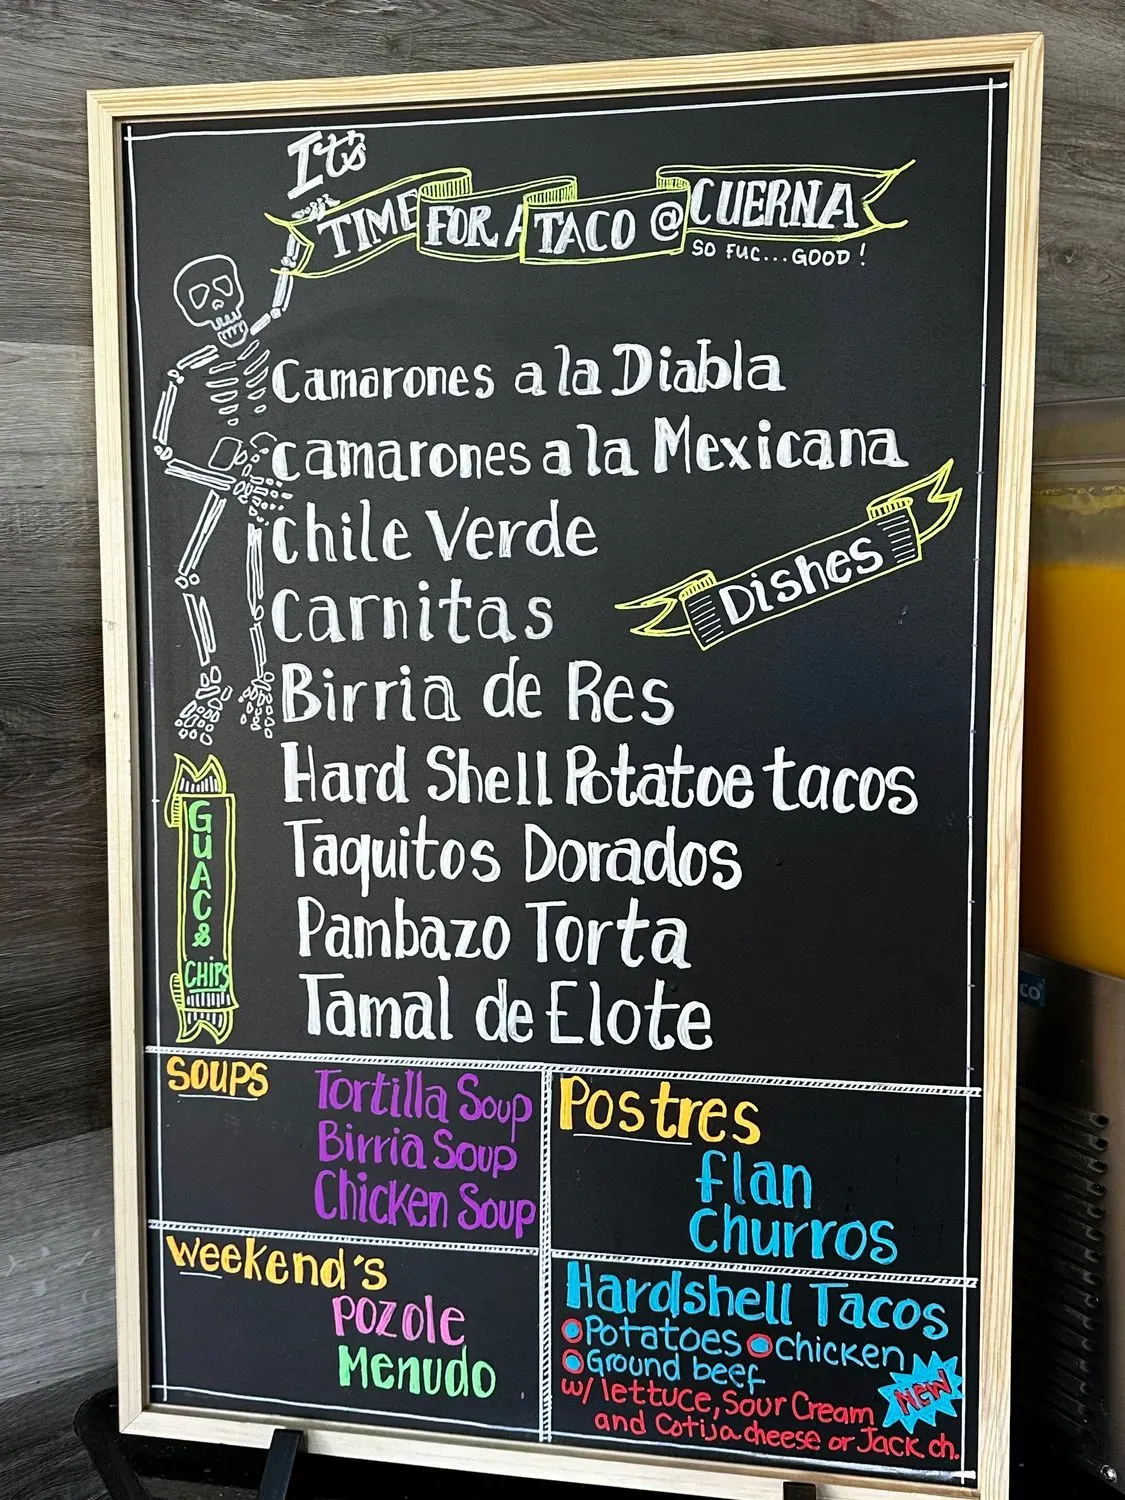 It's
TIME FOR A TACO @ CUERNA
SO FUC...GOOD!
Camarones a la Diabla
Camarones a la Mexicana
Chile Verde
Carnitas
Dishes
Birria de Res
Hard Shell Potatoe tacos
Taquitos Dorados
Pambazo Torta
Tamal de Elote
GUAC &
CHIPS
SOUPS
Tortilla Soup
Birria Soup
Chicken Soup
Postres
flan
Churros
Weekend's
Pozole
Menudo
Hardshell Tacos
Potatoes chicken
Ground beef
NEW
w/ lettuce, Sour Cream
and Cotija cheese or Jack ch.
CO